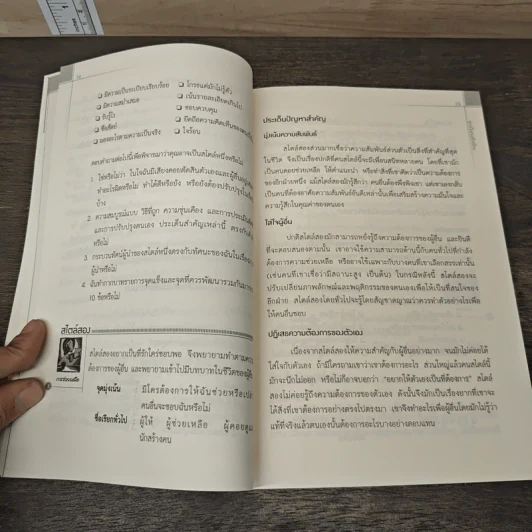 ❑ มีความเป็นระเบียบเรียบร้อย
❑ มีความสม่ำเสมอ
❑ ขี้จู้จี้
❑ ซื่อสัตย์
❑ มองอะไรตามความเป็นจริง
❑ โกรธแต่มักไม่รู้ตัว
❑ เน้นรายละเอียดเกินไป
❑ ชอบควบคุม
❑ ยึดถือความคิดเห็นของตน
❑ ใจร้อน
ตอบคำถามต่อไปนี้เพื่อพิจารณาว่าคุณอาจเป็นสไตล์หนึ่งหรือไม่
1. ใช่หรือไม่ว่า ในใจฉันมีเสียงคอยตัดสินตัวเองและผู้อื่นอยู่
ทำอะไรผิดหรือไม่ ทำได้ดีหรือยัง หรือยังต้องปรับปรุงใน
บ้าง
2. ความสมบูรณ์แบบ วิธีที่ถูก ความขุ่นเคือง และการประเมิน
และการปรับปรุงตนเอง ประเด็นสำคัญเหล่านี้ ตรงกับ
หรือไม่
3. กระบวนทัศน์ผู้นำของสไตล์หนึ่งตรงกับทัศนะของฉันในเรื่อง
ผู้นำหรือไม่
4. ฉันทำการบริหารการจุดแข็งและจุดที่ควรพัฒนารวมกันมาก
10 ข้อหรือไม่
สไตล์สอง
สไตล์สองอยากเป็นที่รักใคร่ชอบพอ จึงพยายามทำตามความ
ต้องการของผู้อื่น และพยายามเข้าไปมีบทบาทในชีวิตของผู้อื่น
จุดมุ่งเน้น : มีใครต้องการให้ฉันช่วยหรือเปล่า
คนอื่นจะชอบฉันหรือไม่
ชื่อเรียกทั่วไป : ผู้ให้ ผู้ช่วยเหลือ ผู้คอยดูแล
นักสร้างคน
ประเด็นปัญหาสำคัญ
มุ่งเน้นความสัมพันธ์
สไตล์สองส่วนมากเชื่อว่าความสัมพันธ์ส่วนตัวเป็นสิ่งที่สำคัญที่สุด
ในชีวิต จึงเป็นเรื่องปกติที่คนสไตล์นี้จะมีเพื่อนสนิทหลายคน โดยที่เขามัก
เป็นคนคอยช่วยเหลือ ให้คำแนะนำ หรือทำสิ่งที่เขาคิดว่าเป็นความต้องการ
ของอีกฝ่ายหนึ่ง แม้สไตล์สองมักรู้สึกว่า คนอื่นต้องพึ่งพิงเขา แต่เขาเองกลับ
เป็นคนที่ต้องอาศัยความสัมพันธ์อันดีเหล่านั้นเพื่อเสริมสร้างความมั่นใจและ
ความรู้สึกในคุณค่าของตนเอง
ใส่ใจผู้อื่น
ปกติสไตล์สองมักสามารถหยั่งรู้ถึงความต้องการของผู้อื่น และยินดี
ที่จะตอบสนองตามนั้น เขาอาจใช้ความสามารถด้านนี้กับคนทั่วไปที่กำลัง
ต้องการความช่วยเหลือ หรืออาจใช้เฉพาะกับบางคนที่เขาเลือกสรรเท่านั้น
(เช่นคนที่เขาเชื่อว่ามีสถานะสูง เป็นต้น) ในกรณีหลังนี้ สไตล์สองจะ
ปรับเปลี่ยนภาพลักษณ์และพฤติกรรมของตนเองเพื่อให้เป็นที่สนใจของ
อีกฝ่าย สไตล์สองโดยทั่วไปจะรู้โดยสัญชาตญาณว่าควรทำอย่างไรเพื่อ
ให้คนอื่นชอบ
ปฏิเสธความต้องการของตัวเอง
เนื่องจากสไตล์สองให้ความสำคัญกับผู้อื่นอย่างมาก จนมักไม่ค่อยได้
ใส่ใจกับตัวเอง ถ้ามีใครถามเขาว่าเขาต้องการอะไร ส่วนใหญ่แล้วคนสไตล์นี้
มักจะนึกไม่ออก หรือไม่ก็อาจบอกว่า “อยากให้ตัวเองเป็นที่ต้องการ” สไตล์
สองไม่ค่อยรู้ถึงความต้องการของตัวเอง ดังนั้นจึงมักเป็นเรื่องยากที่เขาจะ
ได้สิ่งที่เขาต้องการอย่างตรงไปตรงมา เขาจึงทำอะไรเพื่อผู้อื่นโดยมักไม่รู้ว่า
แท้ที่จริงแล้วตนเองนั้นต้องการอะไรบางอย่างตอบแทน